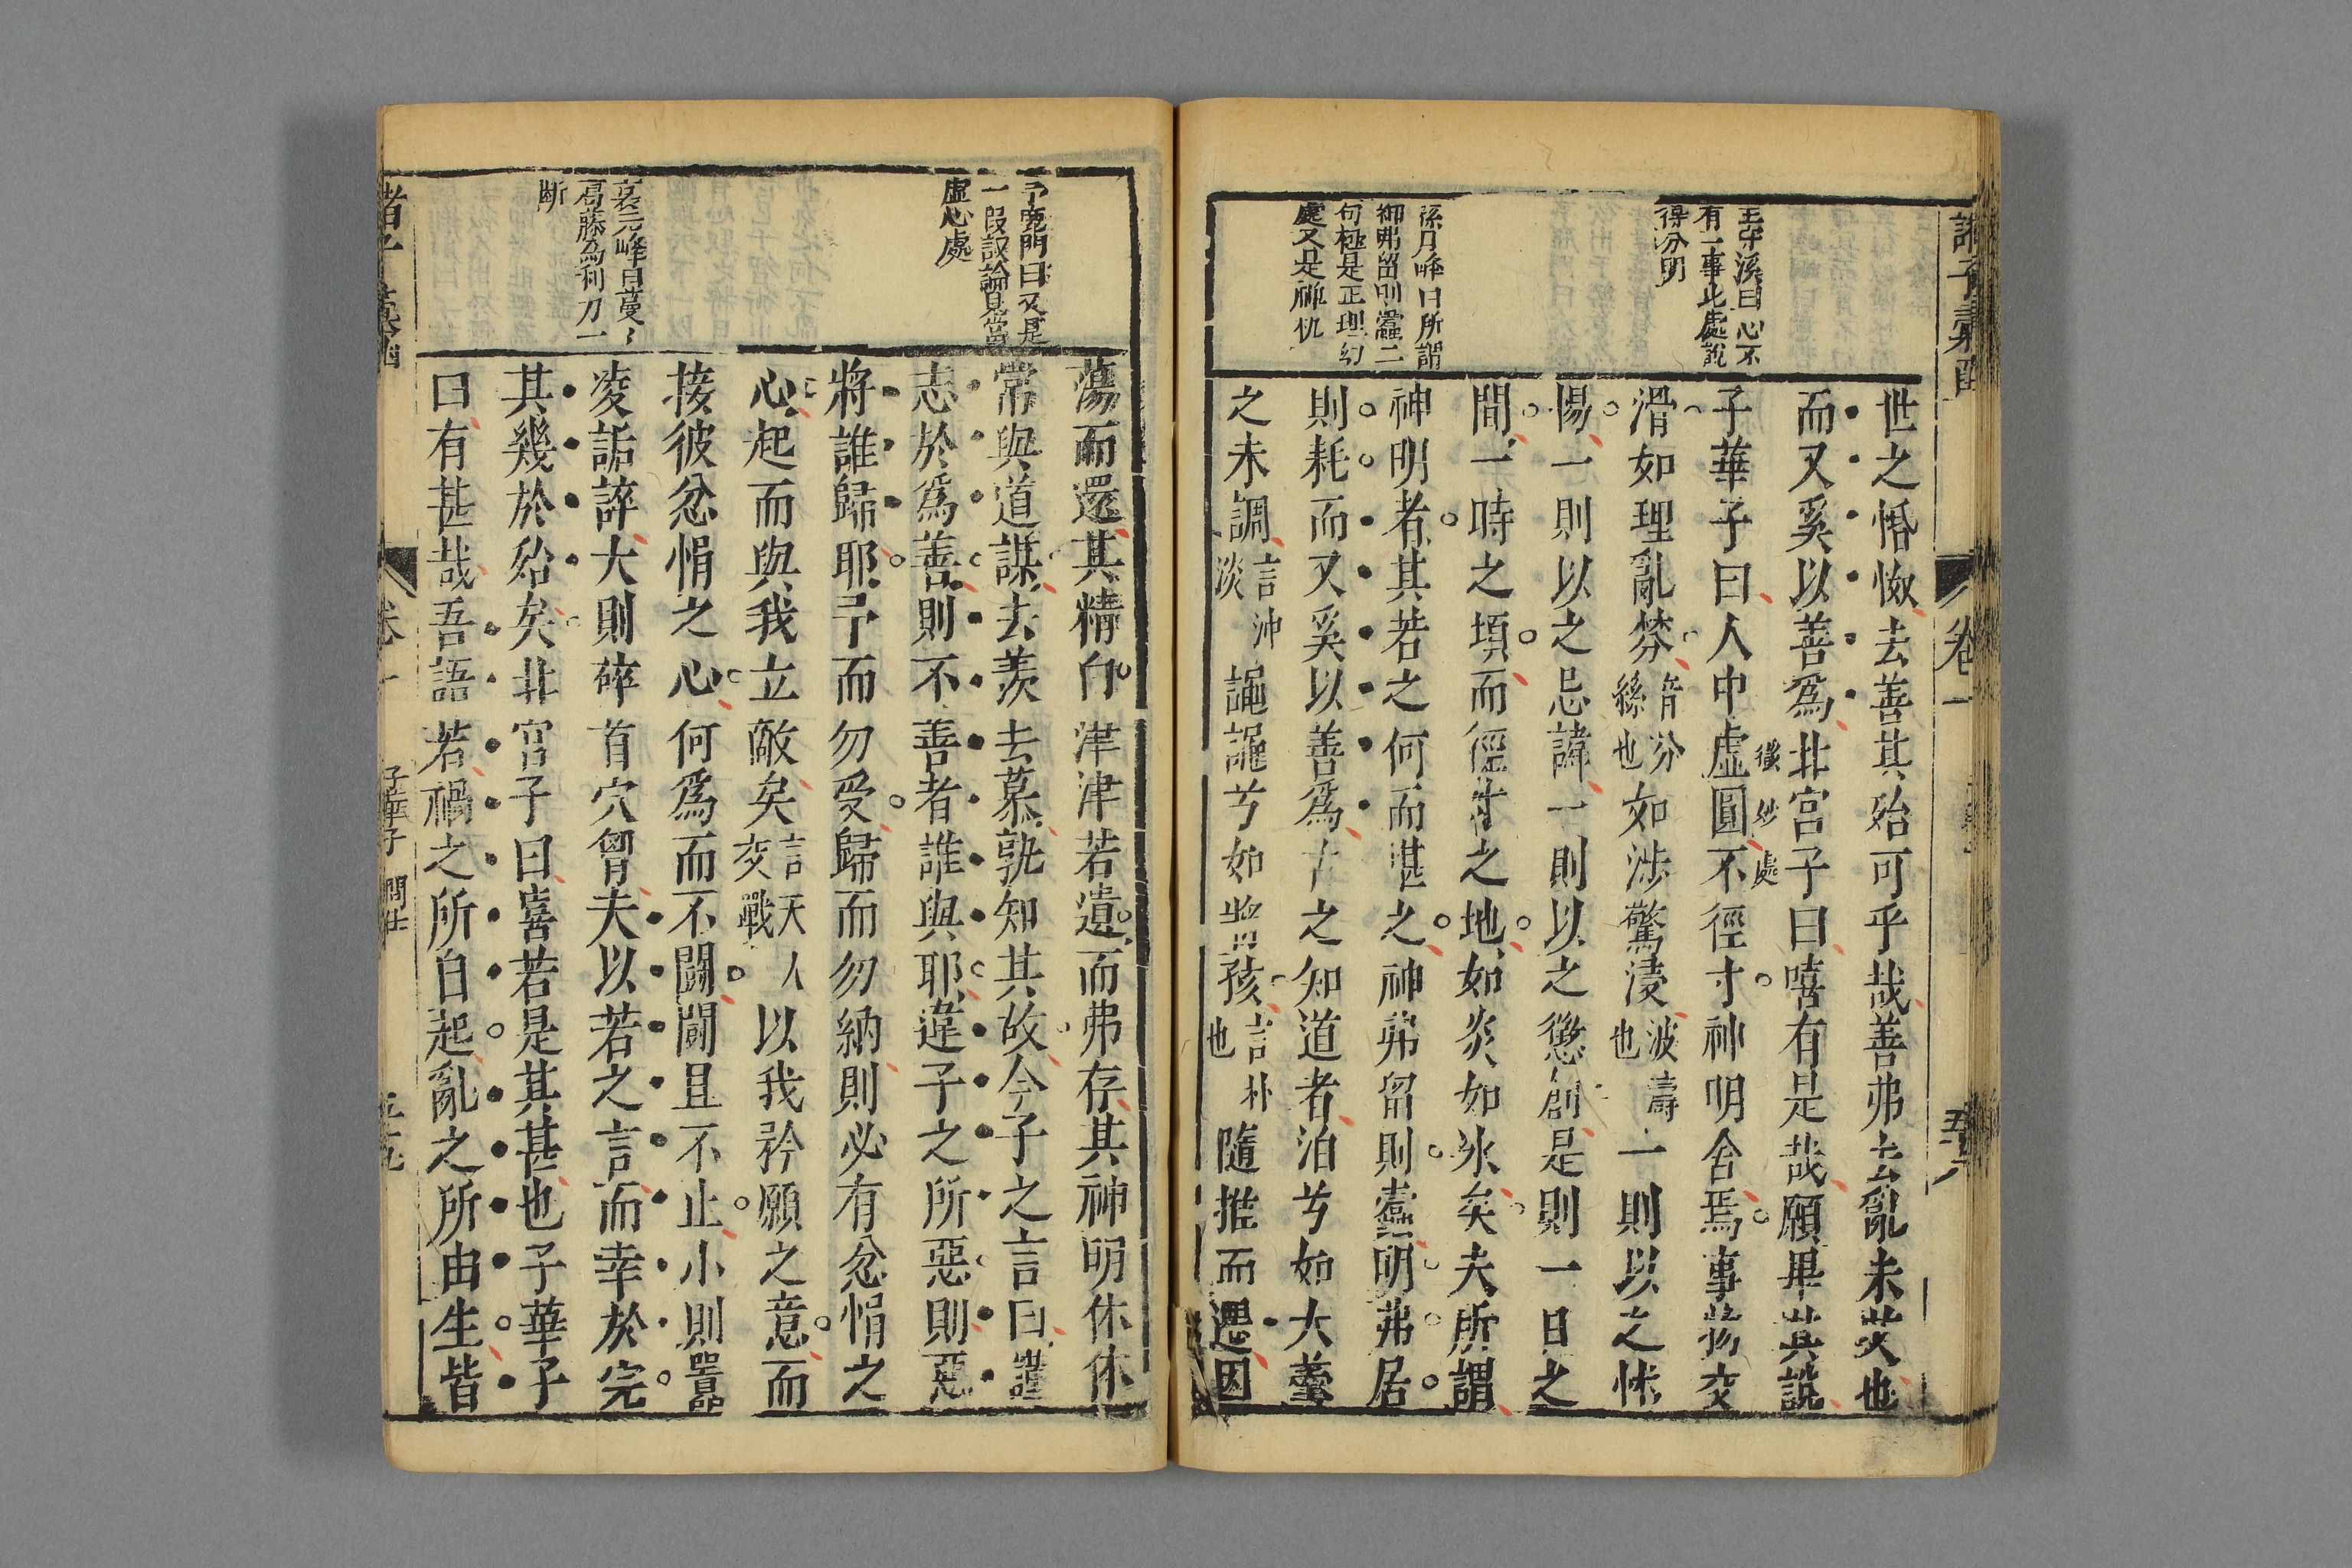 王宇溪曰心不
有一事此處說
得分明
孫月峰曰所謂
御弗留則蠹二
句極是正理幻
處又是禪仇
世之惛怓去善其殆可乎哉善弗去亂未艾也
而又奚以善爲北宮子曰嘻有是哉願畢其說
子華子曰人中虛圓不徑寸神明舍焉事物交
微妙處
滑如理亂棼音分絲也如涉驚浸波濤也一則以之怵
惕一則以之忌諱一則以之懲創是則一日之
間一時之頃而徑寸之地如炎如氷矣夫所謂
神明者其若之何而堪之神弗留則蠹明弗居
則耗而又奚以善爲古之知道者泊兮如大羹
之未調言沖淡諨諨兮如嬰孩言朴也隨推而遷因
卷一
一段議論見當
虛心處
袁元峰曰蔓々
葛藤為利刀一
斷
蕩而還其精白津津若遺而弗存其神明休休
常與道謀去羨去慕孰知其故今子之言曰謹
志於爲善則不善者誰與耶違子之所惡則惡
將誰歸耶予而勿受歸而勿納則必有忿悁之
心起而與我立敵矣言天人交戰以我矜願之意而
接彼忿悁之心何爲而不鬬鬬且不止小則囂
凌詬誶大則碎首穴胷夫以若之言而幸於完
其幾於殆矣北宮子曰嘻若是其甚也子華子
曰有甚哉吾語若禍之所自起亂之所由生皆
卷一
子華子